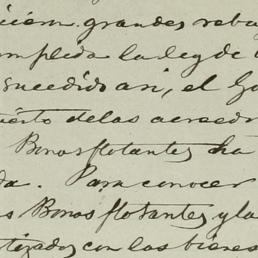 iciem. grandes reba
umplida la ley de
sucedido asi, el Go
uesto de las acreedor
Bonos flotantes ha
da. Para conocer
s Bonos flotantes y la
tizados con los bienes